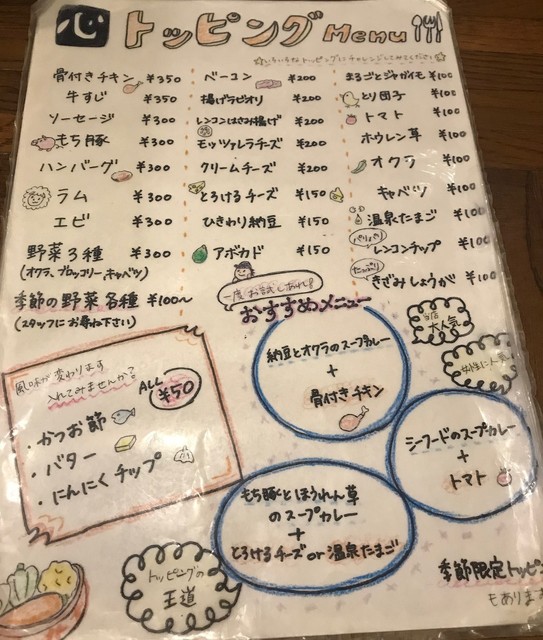 心 トッピング Menu
☆いろいろなトッピングにチャレンジしてみてください☆
骨付きチキン ¥350
牛すじ ¥350
ソーセージ ¥300
もち豚 ¥300
ハンバーグ ¥300
ラム ¥300
エビ ¥300
野菜3種 ¥300
(オクラ、ブロッコリー、キャベツ)
季節の野菜各種 ¥100〜
(スタッフにお尋ね下さい)
ベーコン ¥200
揚げラビオリ ¥200
レンコンはさみ揚げ ¥200
モッツァレラチーズ ¥200
クリームチーズ ¥200
とろけるチーズ ¥150
ひきわり納豆 ¥150
アボカド ¥150
まるごとジャガイモ ¥100
とり団子 ¥100
トマト ¥100
ホウレン草 ¥100
オクラ ¥100
キャベツ ¥100
温泉たまご ¥100
パリパリ
レンコンチップ ¥100
たっぷり
きざみしょうが ¥100
一度お試しあれ!
おすすめメニュー
風味が変わります
入れてみませんか?
ALL
¥50
・かつお節
・バター
・にんにくチップ
納豆とオクラのスープカレー
+
骨付きチキン
当店
大人気
女性に人気
シーフードのスープカレー
+
トマト
もち豚とほうれん草
のスープカレー
+
とろけるチーズor温泉たまご
トッピングの
王道
季節限定トッピ
もありま